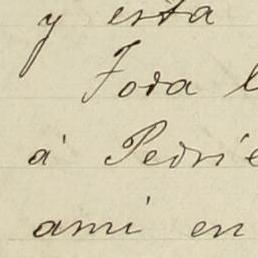 y esta
Toda l
á Pedri
ami en